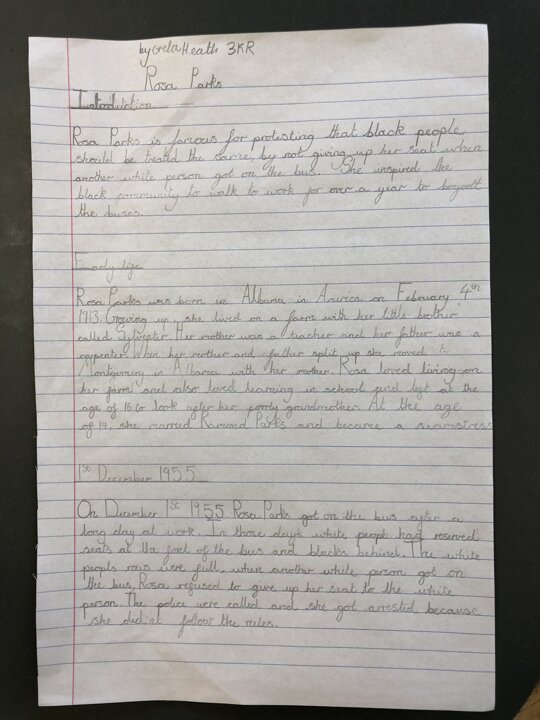 by Greta Heath 3KR
Rosa Parks
Introduction
Rosa Parks is famous for protesting that black people
should be treated the same, by not giving up her seat when
another white person got on the bus. She inspired the
black community to walk to work for over a year to boycott
the buses.
Early life
Rosa Parks was born in Albuma in America on February 4th
1913. Growing up, she lived on a farm with her little brother
called Sylvester. Her mother was a teacher and her father was a
carpenter. When her mother and father split up she moved to
Montgomery in Albama with her mother. Rosa loved living on
her farm and also loved learning in school and left at the
age of 16 to look after her poorly grandmother. At the age
of 19, she married Ramond Parks and became a seamstress
1st December 1955
On December 1st 1955 Rosa Parks got on the bus after a
long day at work. In those days white people had reserved
seats at the font of the bus and blacks behind. The white
peopls rows were full, when another white person got on
the bus, Rosa refused to give up her seat to the white
person. The police were called and she got arrested because
she did nt follow the rules.